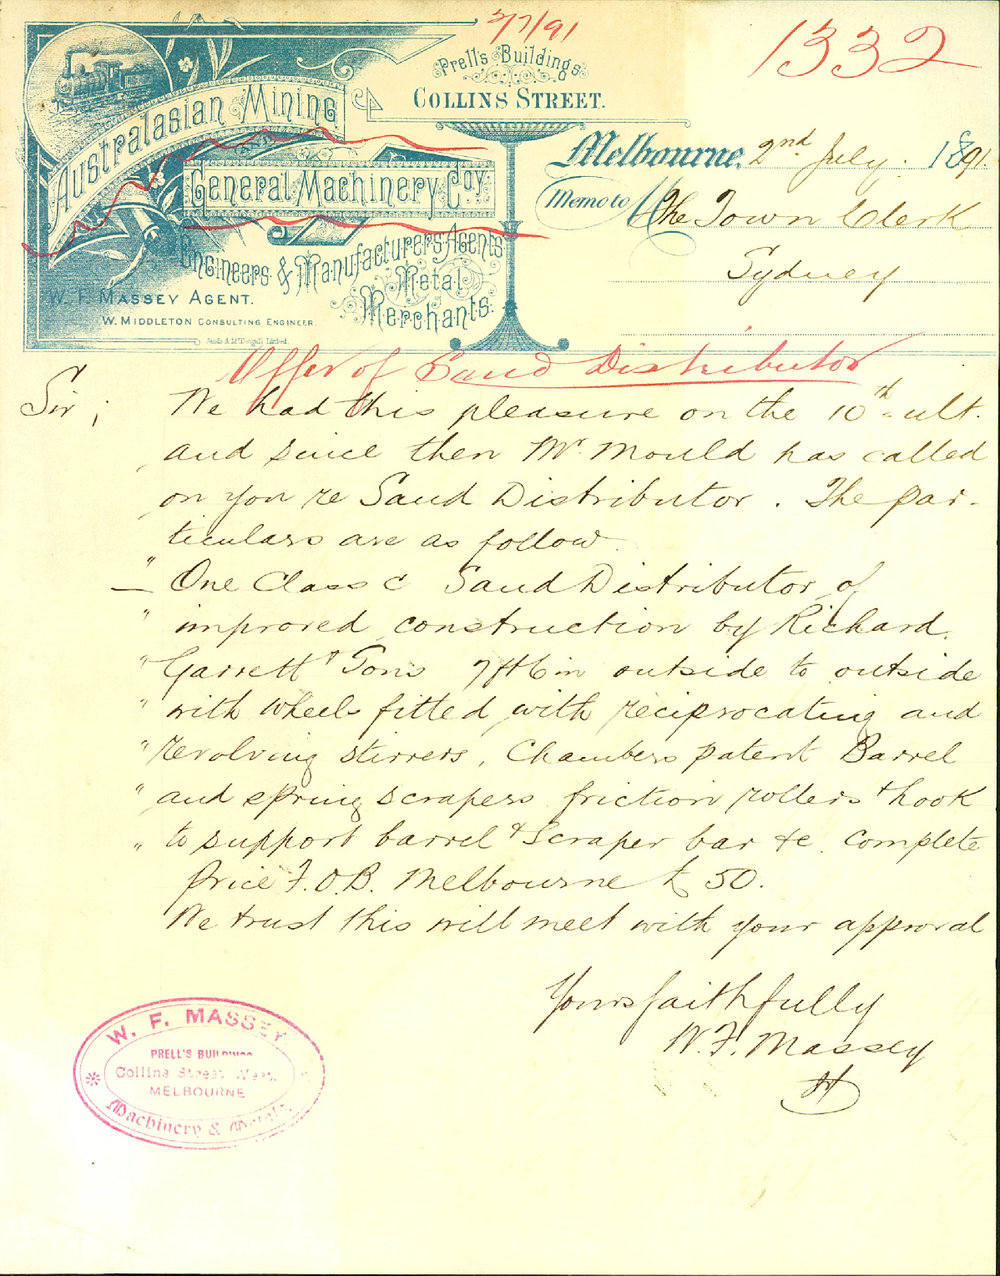 3/7/91
1332
Prell's Buildings
COLLINS STREET.
Australasian Mining
General Machinery Coy.
Engineers & Manufacturers Agents
Metal
Merchants.
W. F. MASSEY AGENT.
W. MIDDLETON CONSULTING ENGINEER.
Melbourne, 2nd July 1891.
Memo to The Town Clerk
Sydney
Offer of Sand Distributor
Sir; We had this pleasure on the 10th ult.
and since then Mr. Mould has called
on you re Sand Distributor. The par-
ticulars are as follow.
" One Class C Sand Distributor of
" improved construction by Richard
" Garrett & Sons 7ft 6in outside to outside
" with wheels fitted with reciprocating and
" revolving stirrers, Chambers patent Barrel
" and spring scrapers friction rollers & hook
" to support barrel & Scraper bar &c. complete
Price F.O.B. Melbourne £50.
We trust this will meet with your approval
Yours faithfully
W. F. Massey
W. F. MASSEY
PRELL'S BUILDINGS
Collins Street West.
MELBOURNE
Machinery & Metals